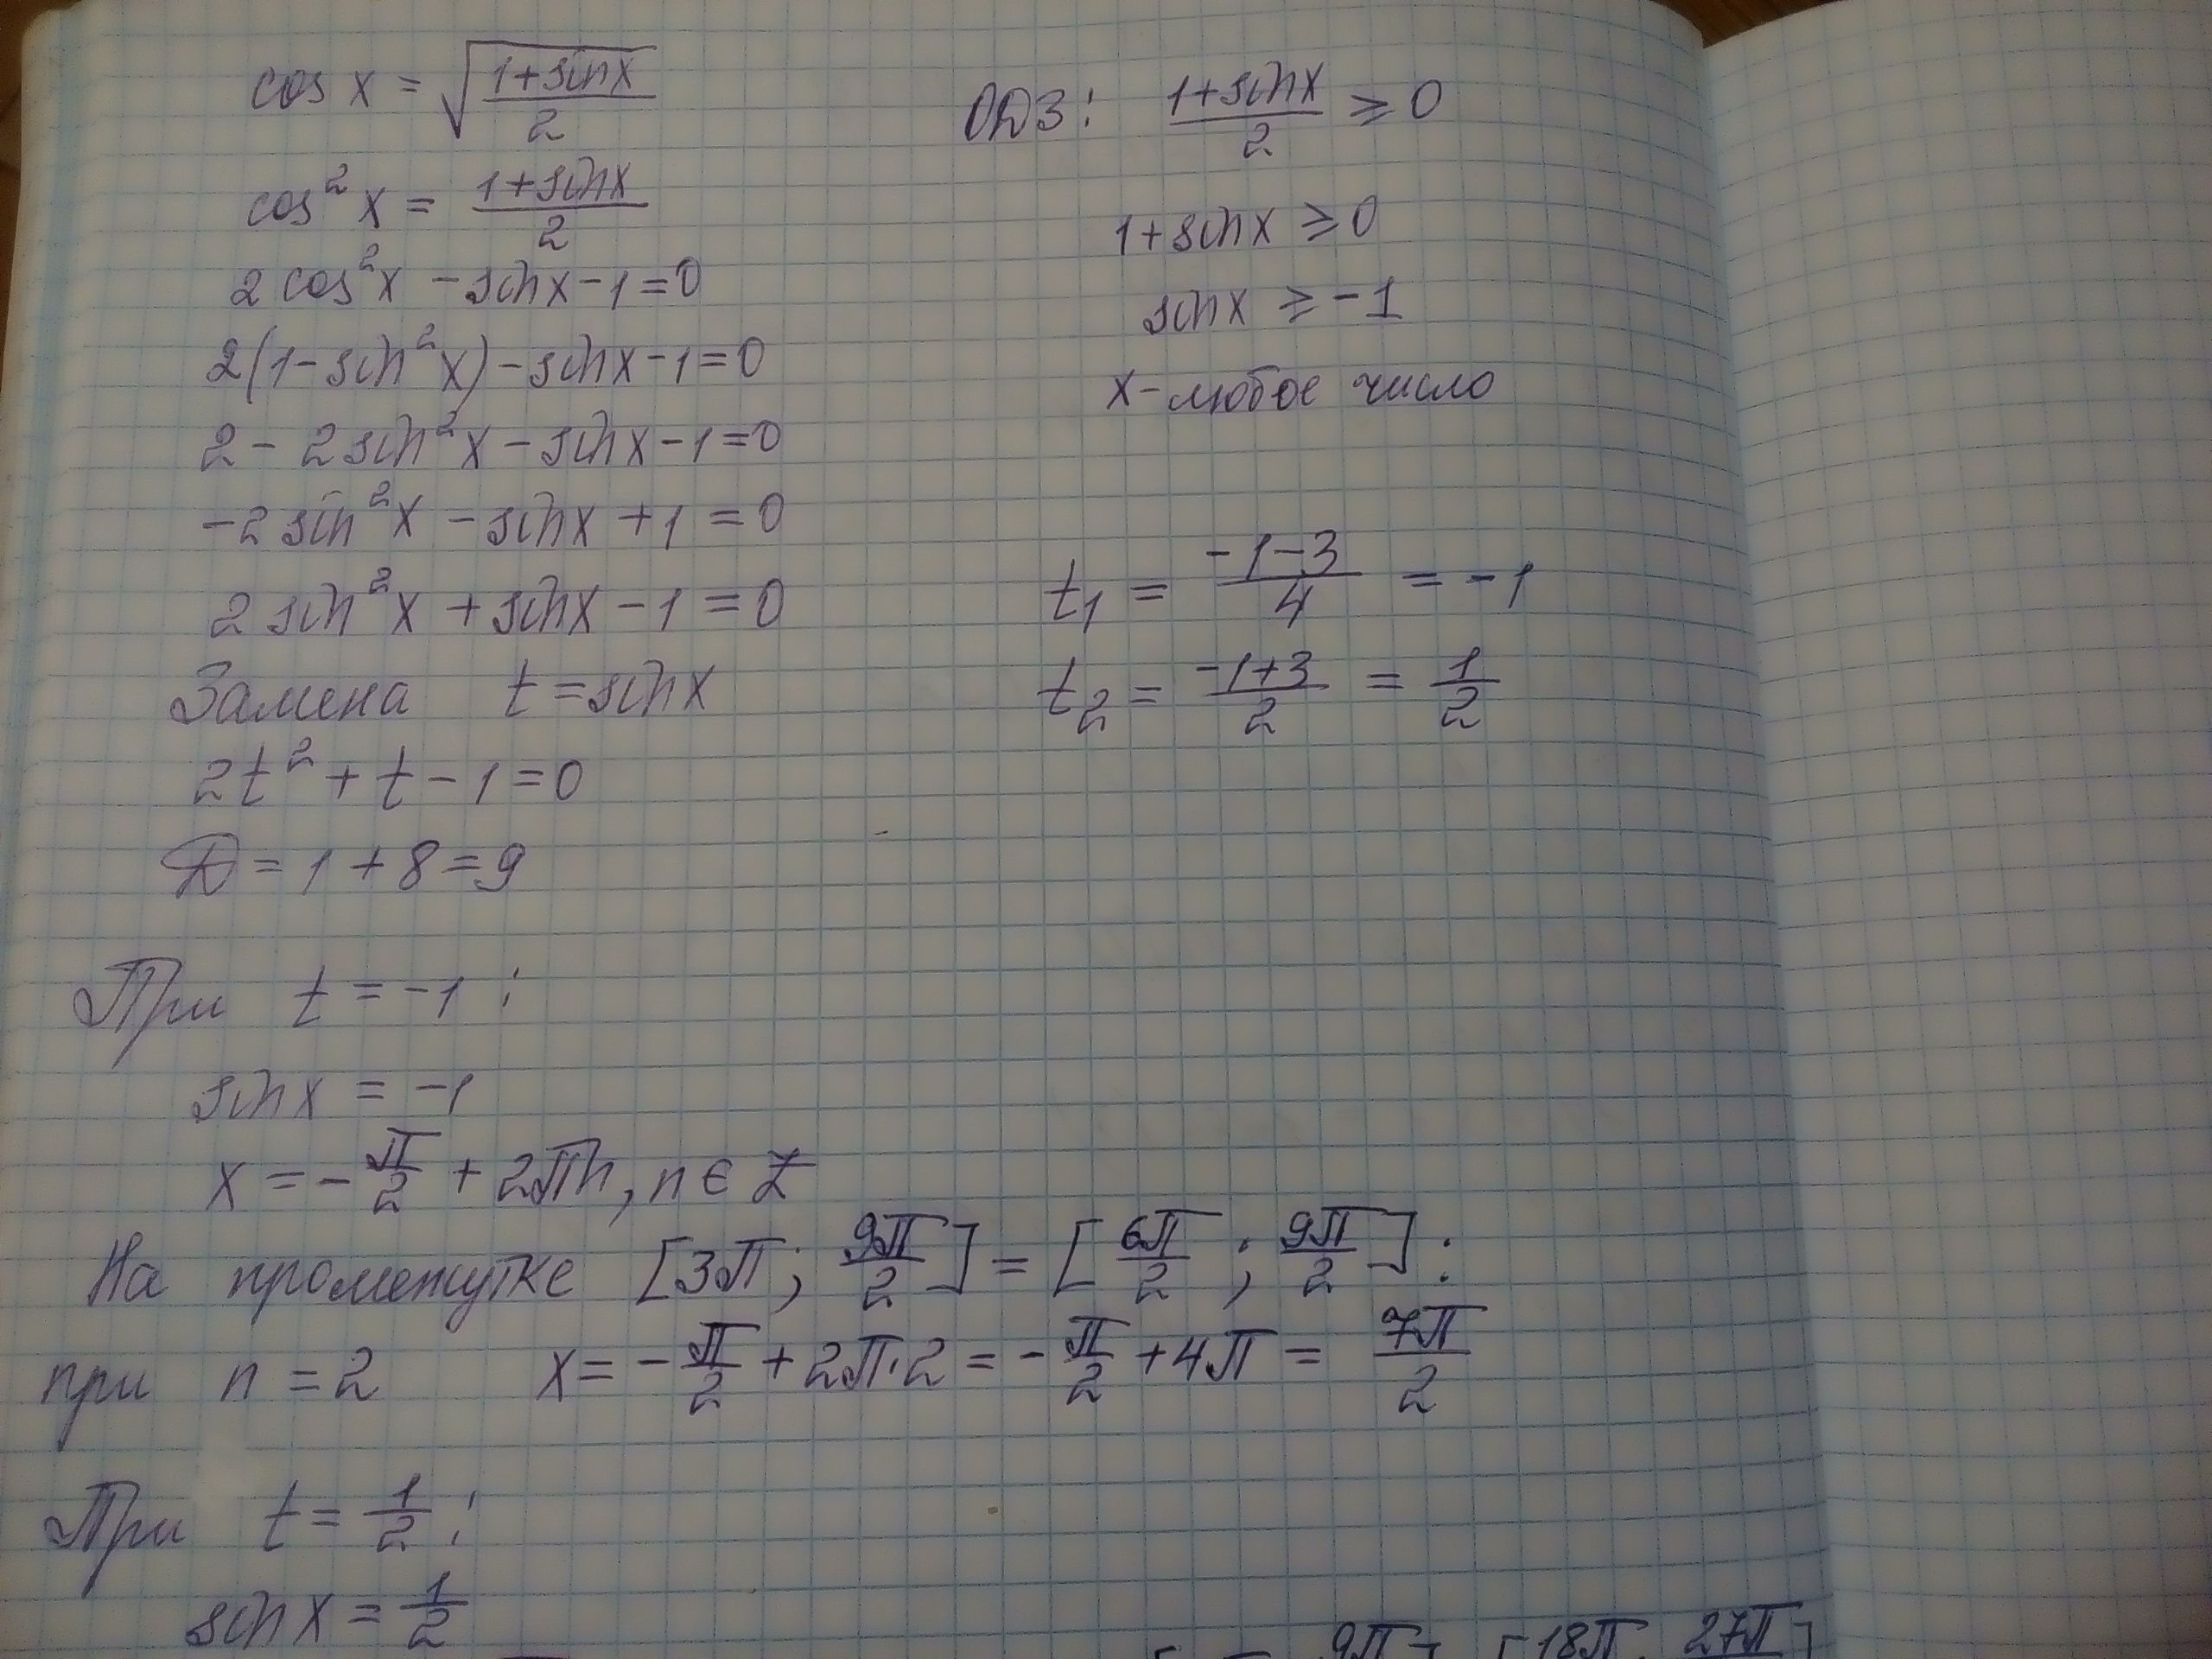 cos x = √((1+sinx)/2)
cos² x = (1+sinx)/2
2 cos²x - sinx - 1 = 0
2(1 - sin²x) - sinx - 1 = 0
2 - 2 sin²x - sinx - 1 = 0
-2 sin²x - sinx + 1 = 0
2 sin²x + sinx - 1 = 0
Замена t = sinx
2t² + t - 1 = 0
D = 1 + 8 = 9
ОДЗ: (1+sinx)/2 ≥ 0
1 + sinx ≥ 0
sinx ≥ -1
x - любое число
t₁ = (-1-3)/4 = -1
t₂ = (-1+3)/2 = 1/2
При t = -1:
sinx = -1
x = -π/2 + 2πn, n ∈ Z
На промежутке [3π; 9π/2] = [6π/2; 9π/2]:
при n = 2 x = -π/2 + 2π·2 = -π/2 + 4π = 7π/2
При t = 1/2:
sinx = 1/2
9π] [18π 27π]